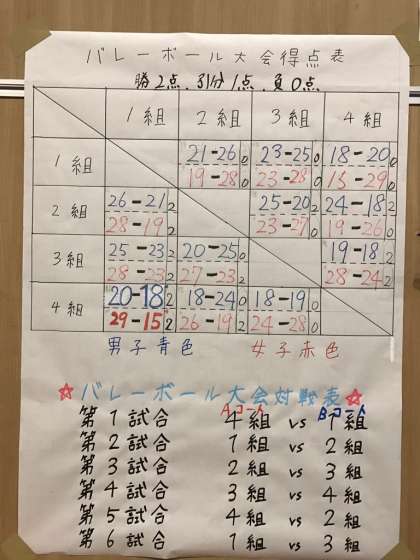 バレーボール大会得点表
勝2点、引分1点、負0点
1組 2組 3組 4組
1組
21-26 0 23-25 0 18-20 0
19-28 0 23-28 0 15-29 0
2組
26-21 2 25-20 2 24-18 2
28-19 2 23-27 0 19-26 0
3組
25-23 2 20-25 0 19-18 2
28-23 2 27-23 2 28-24 2
4組
20-18 2 18-24 0 18-19 0
29-15 2 26-19 2 24-28 0
男子青色 女子赤色
☆バレーボール大会対戦表☆
Aコート Bコート
第1試合 4組 vs 1組
第2試合 1組 vs 2組
第3試合 2組 vs 3組
第4試合 3組 vs 4組
第5試合 4組 vs 2組
第6試合 1組 vs 3組